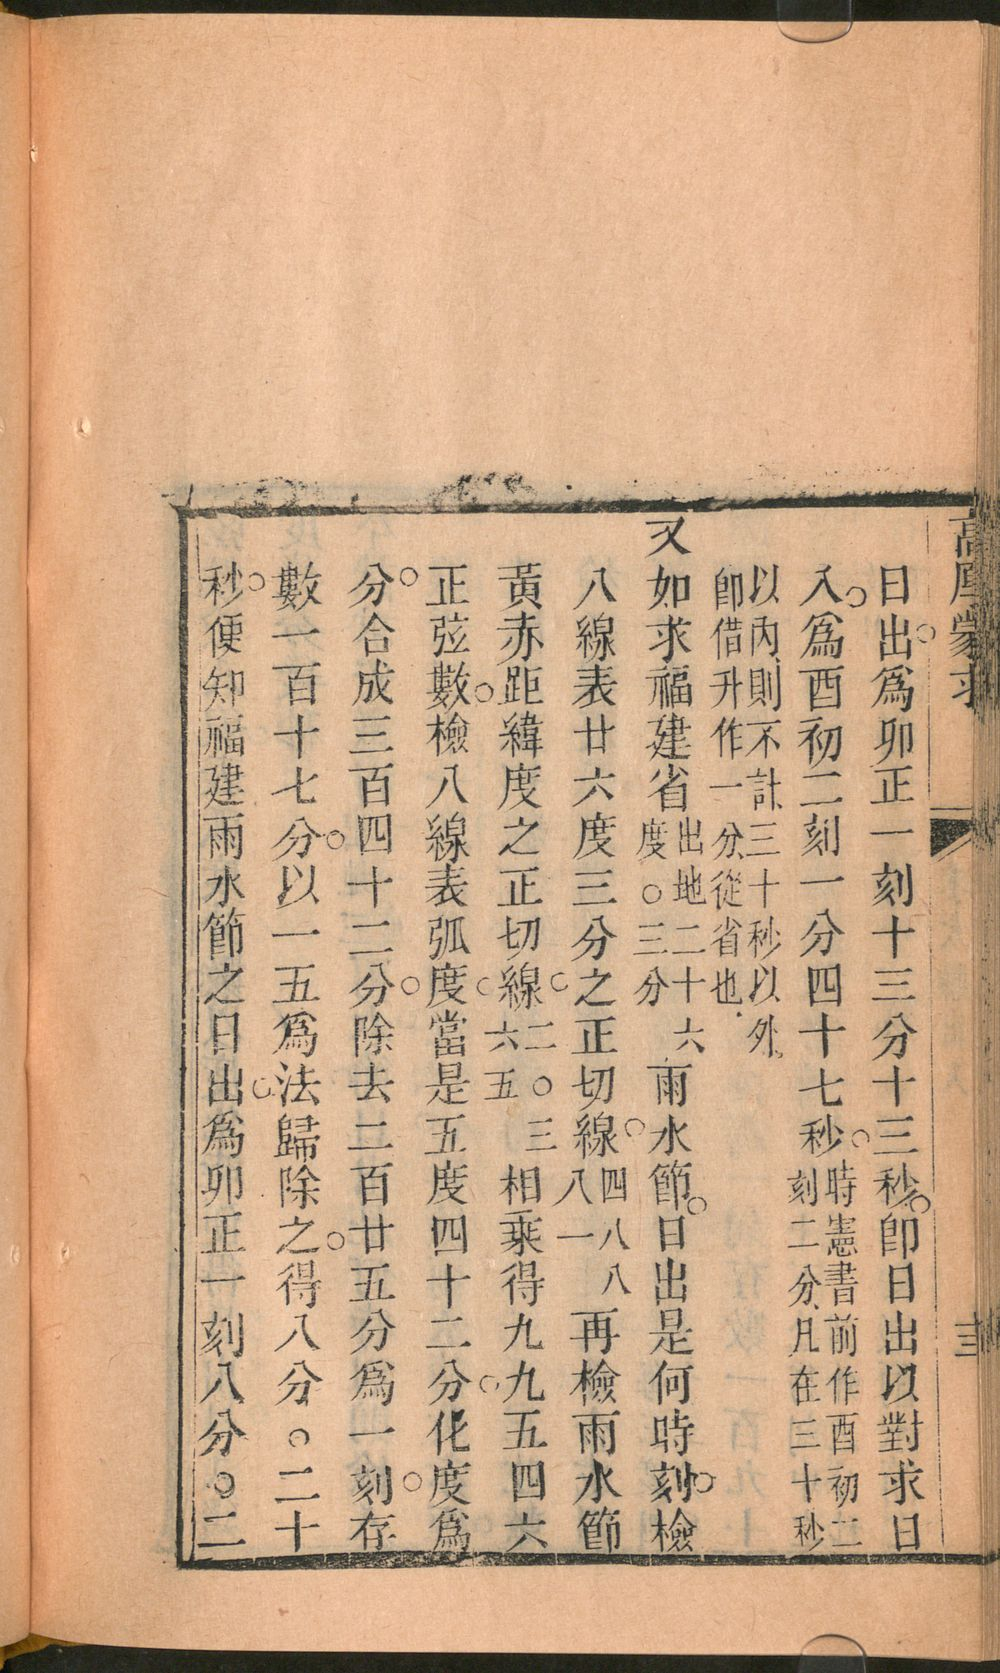 高厚蒙求
三
日出爲卯正一刻十三分十三秒卽日出以對求日
入爲酉初二刻一分四十七秒時憲書前作酉初二
刻二分凡在三十秒
以內則不計三十秒以外
卽借升作一分從省也
又如求福建省出地二十六
度○三分
雨水節日出是何時刻檢
八線表廿六度三分之正切線四八八
八一
再檢雨水節
黃赤距緯度之正切線二○三
六五
相乘得九九五四六
正弦數檢八線表弧度當是五度四十二分化度爲
分合成三百四十二分除去二百廿五分爲一刻存
數一百十七分以一五爲法歸除之得八分○二十
秒便知福建雨水節之日出爲卯正一刻八分○二